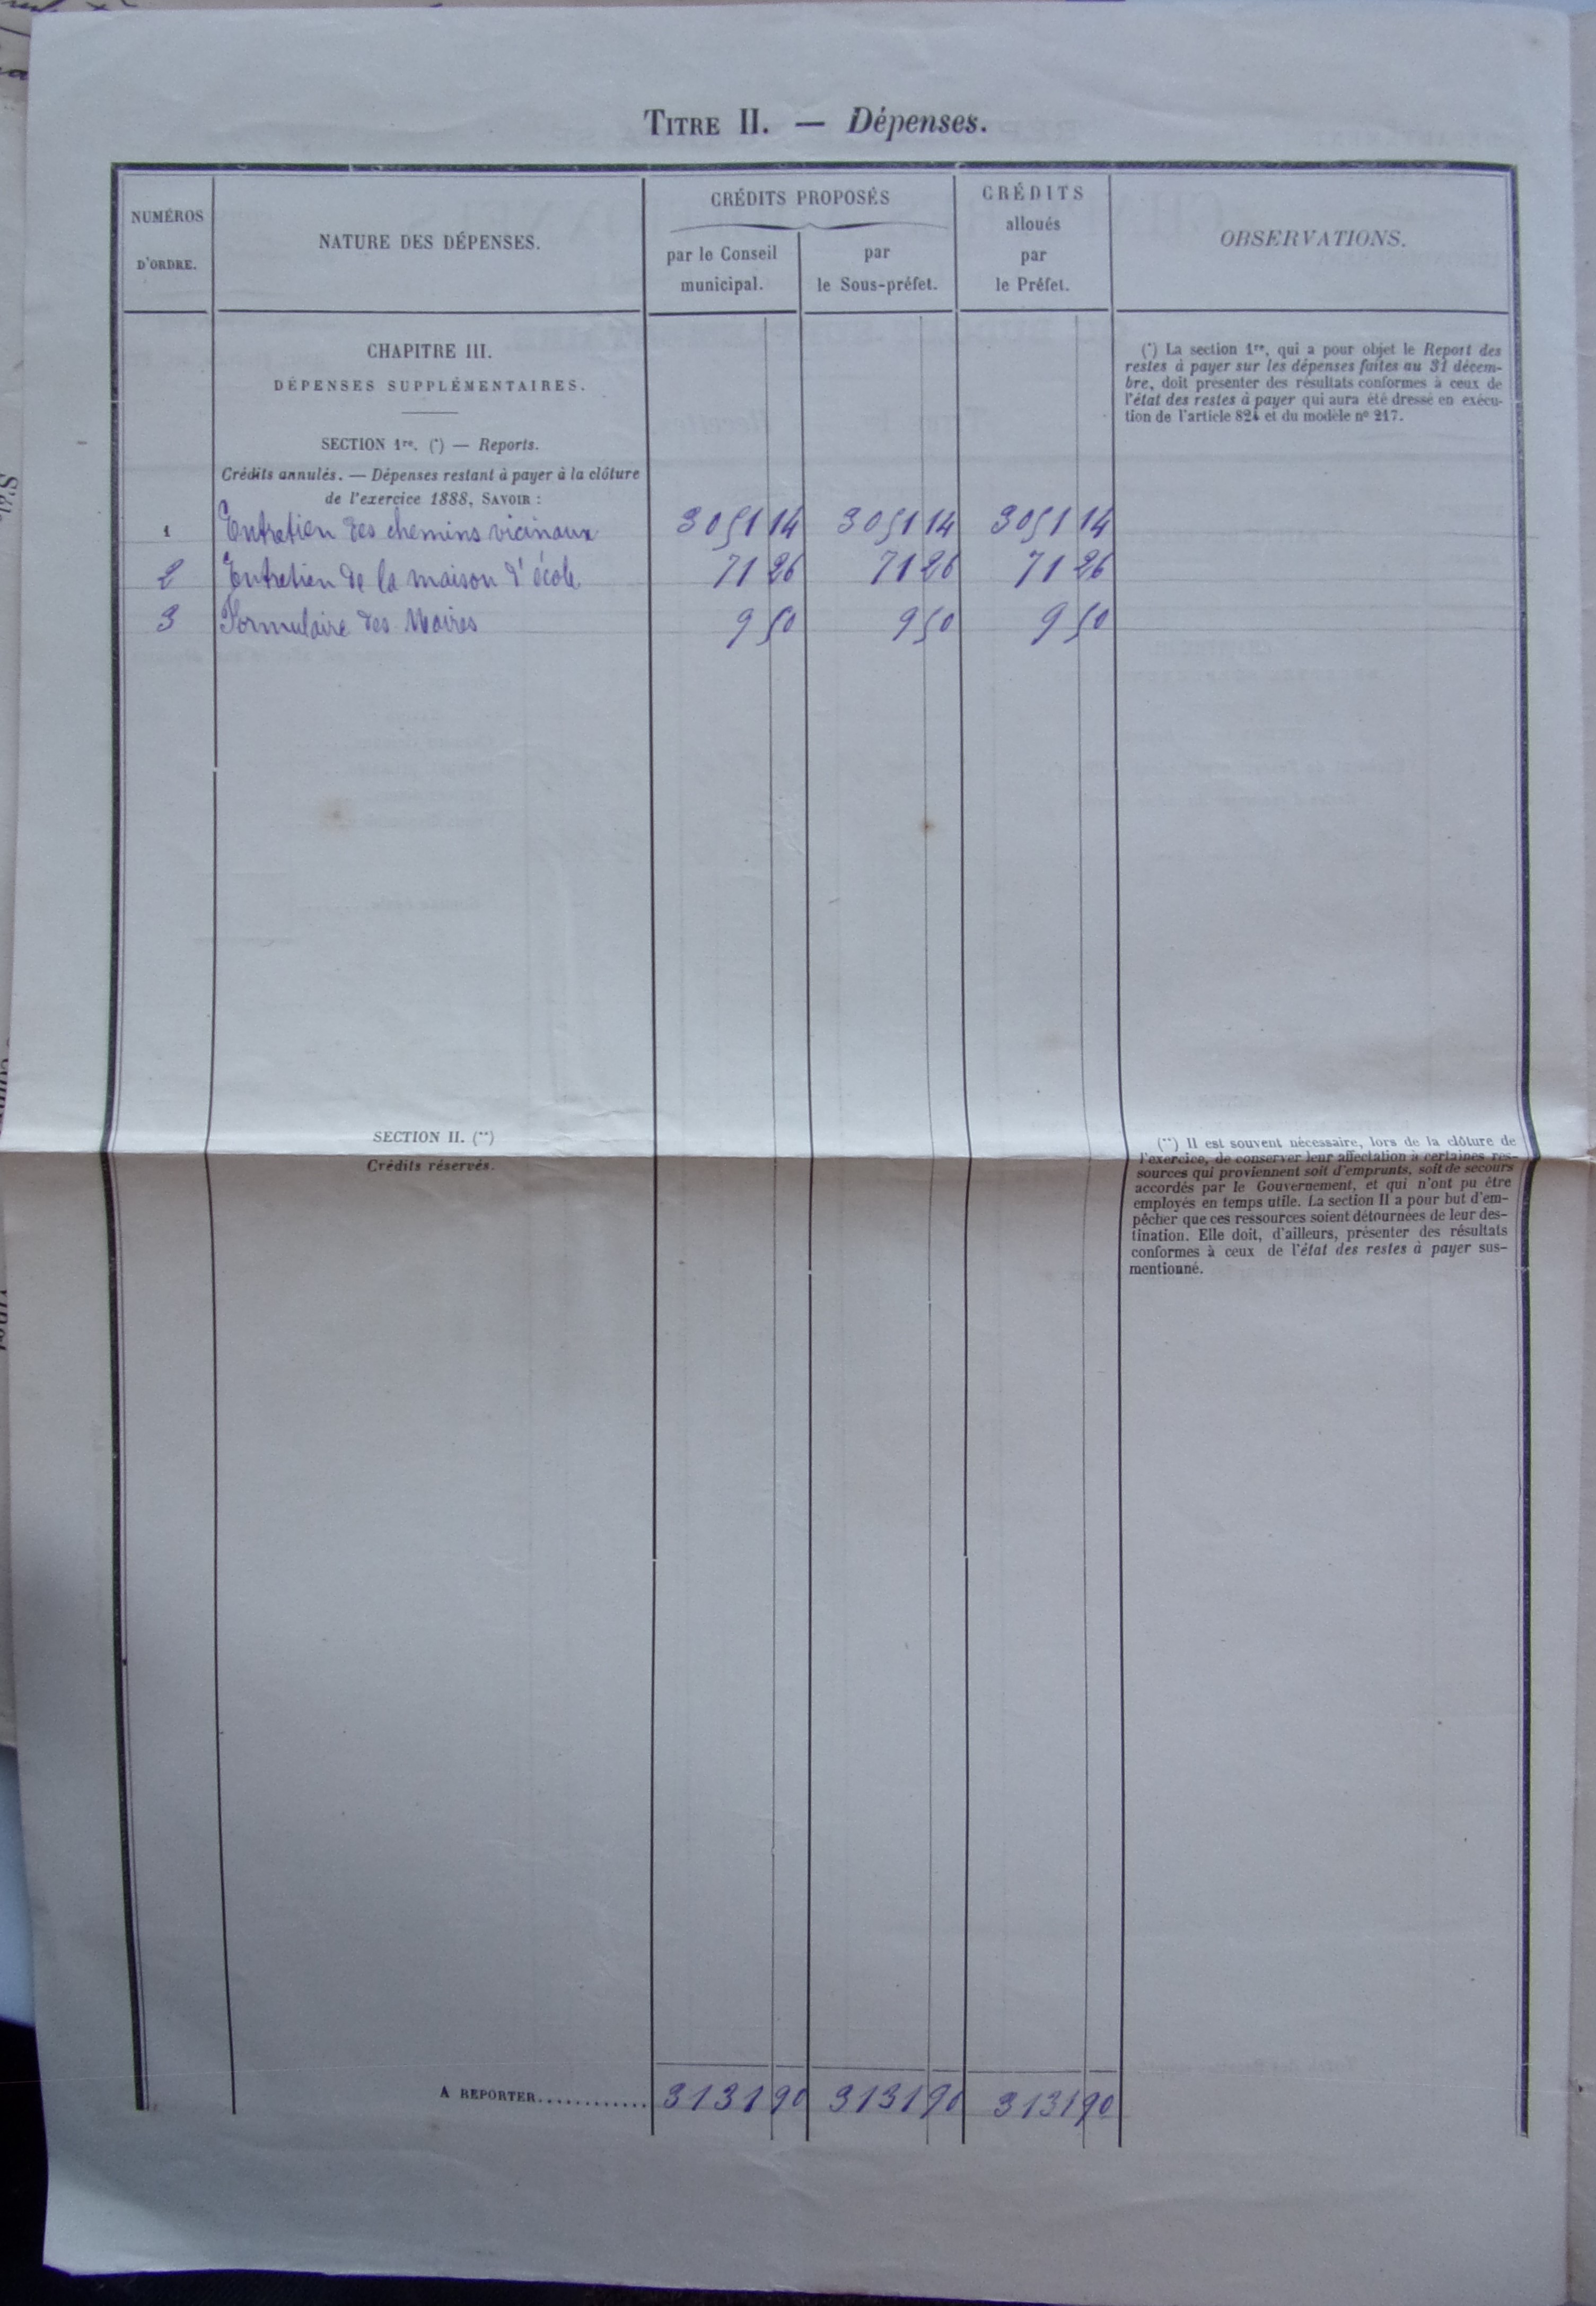 TITRE II. — Dépenses.
NUMÉROS
D'ORDRE.
NATURE DES DÉPENSES.
CRÉDITS PROPOSÉS
par le Conseil
municipal.
par
le Sous-préfet.
CRÉDITS
alloués
par
le Préfet.
OBSERVATIONS.
CHAPITRE III.
DÉPENSES SUPPLÉMENTAIRES.
SECTION 1re. (*) — Reports.
Crédits annulés. — Dépenses restant à payer à la clôture
de l'exercice 1888, SAVOIR :
(*) La section 1re, qui a pour objet le Report des
restes à payer sur les dépenses faites au 31 décem-
bre, doit présenter des résultats conformes à ceux de
l'état des restes à payer qui aura été dressé en exécu-
tion de l'article 824 et du modèle nº 217.
1 Entretien des chemins vicinaux 3051 14 3051 14 3051 14
2 Entretien de la maison d'école 71 26 71 26 71 26
3 Formulaire des Maires 9 50 9 50 9 50
SECTION II. (**)
Crédits réservés.
(**) Il est souvent nécessaire, lors de la clôture de
l'exercice, de conserver leur affectation à certaines res-
sources qui proviennent soit d'emprunts, soit de secours
accordés par le Gouvernement, et qui n'ont pu être
employés en temps utile. La section II a pour but d'em-
pêcher que ces ressources soient détournées de leur des-
tination. Elle doit, d'ailleurs, présenter des résultats
conformes à ceux de l'état des restes à payer sus-
mentionné.
A REPORTER............ 3131 90 3131 90 3131 90